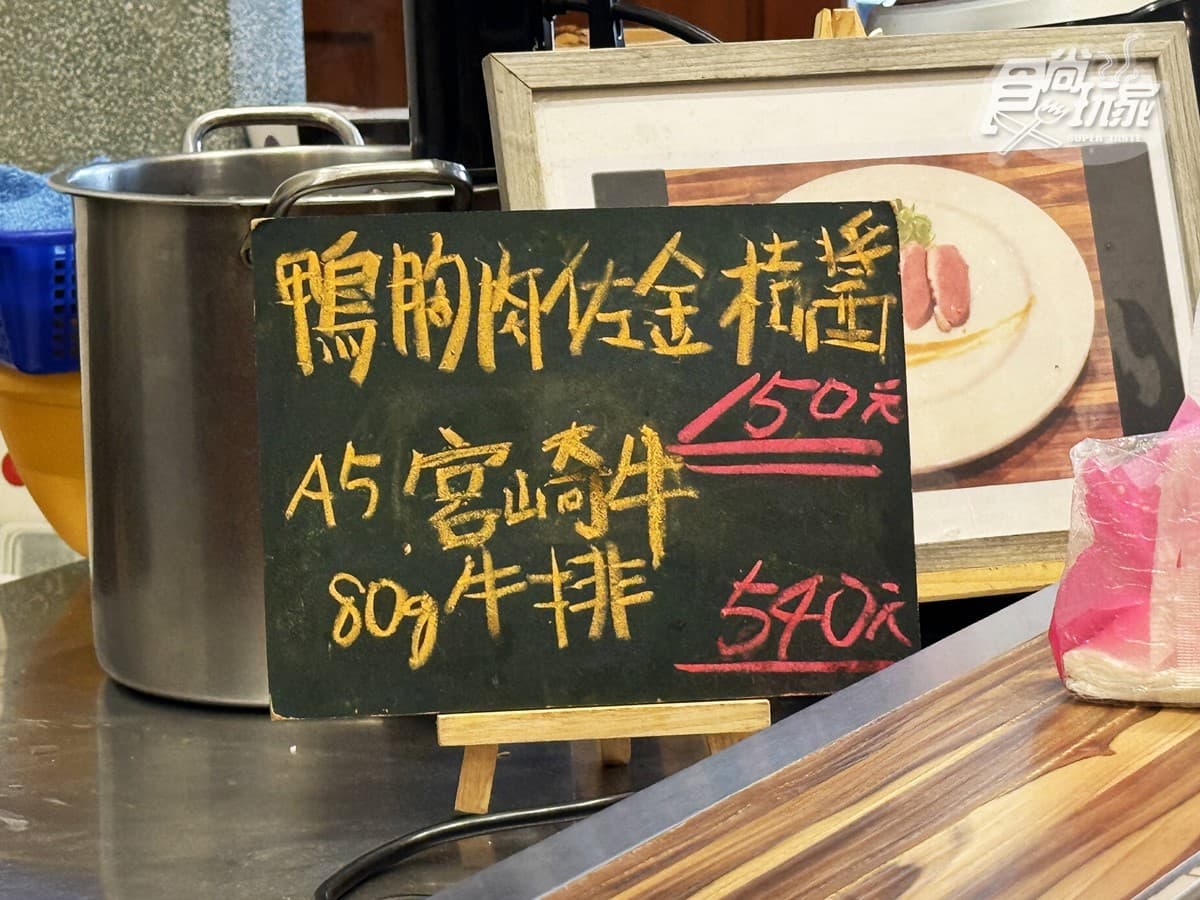 食尚玩家
SUPER TASTE
鴨胸肉佐金桔醬
150元
A5宮崎牛
80g牛排
540元